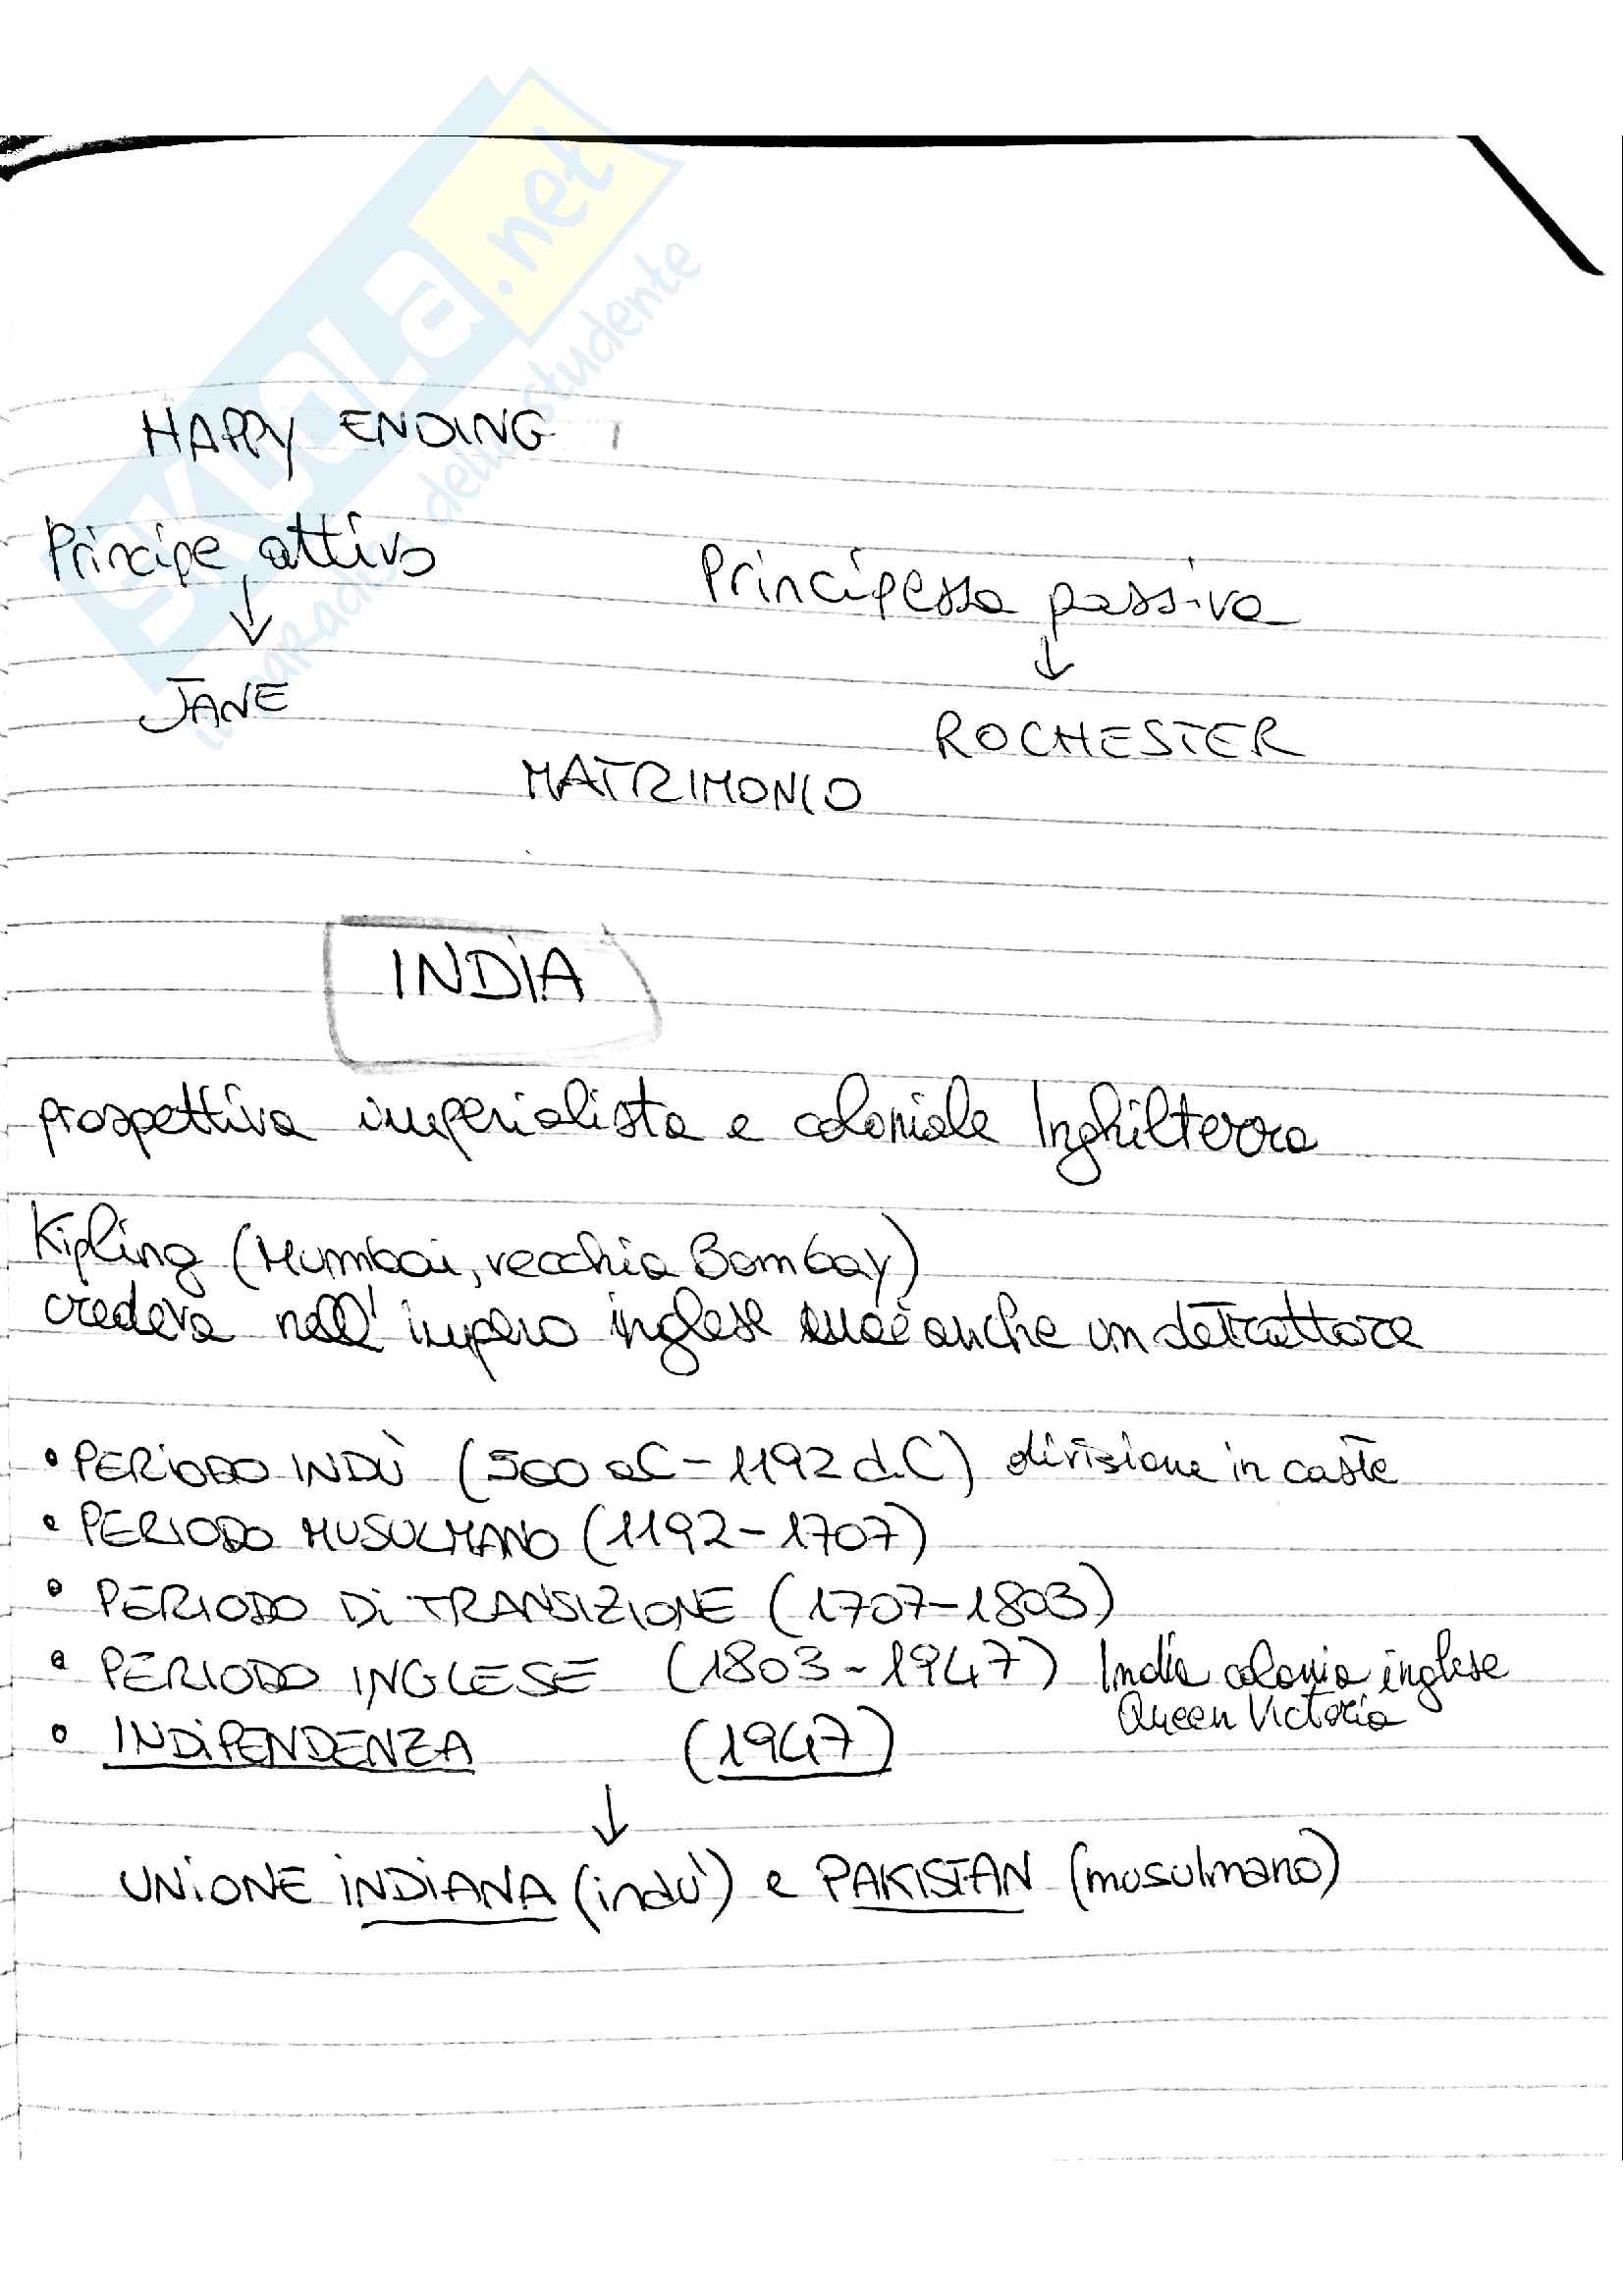 SKUOLA.net
il paradiso dello studente
HAPPY ENDING
Principe attivo
Principessa passiva
↓ ↓
JANE
ROCHESTER
MATRIMONIO
INDIA
prospettiva imperialista e coloniale Inghilterra
Kipling (Mumbai, vecchia Bombay)
credeva nell'impero inglese anche un detrattore
• PERIODO INDÙ (500 a.C - 1192 d.C) divisione in caste
• PERIODO MUSULMANO (1192-1707)
• PERIODO DI TRANSIZIONE (1707-1803)
• PERIODO INGLESE (1803-1947) India colonia inglese
Queen Victoria
• INDIPENDENZA (1947)
↓
UNIONE INDIANA (indù) e PAKISTAN (musulmano)